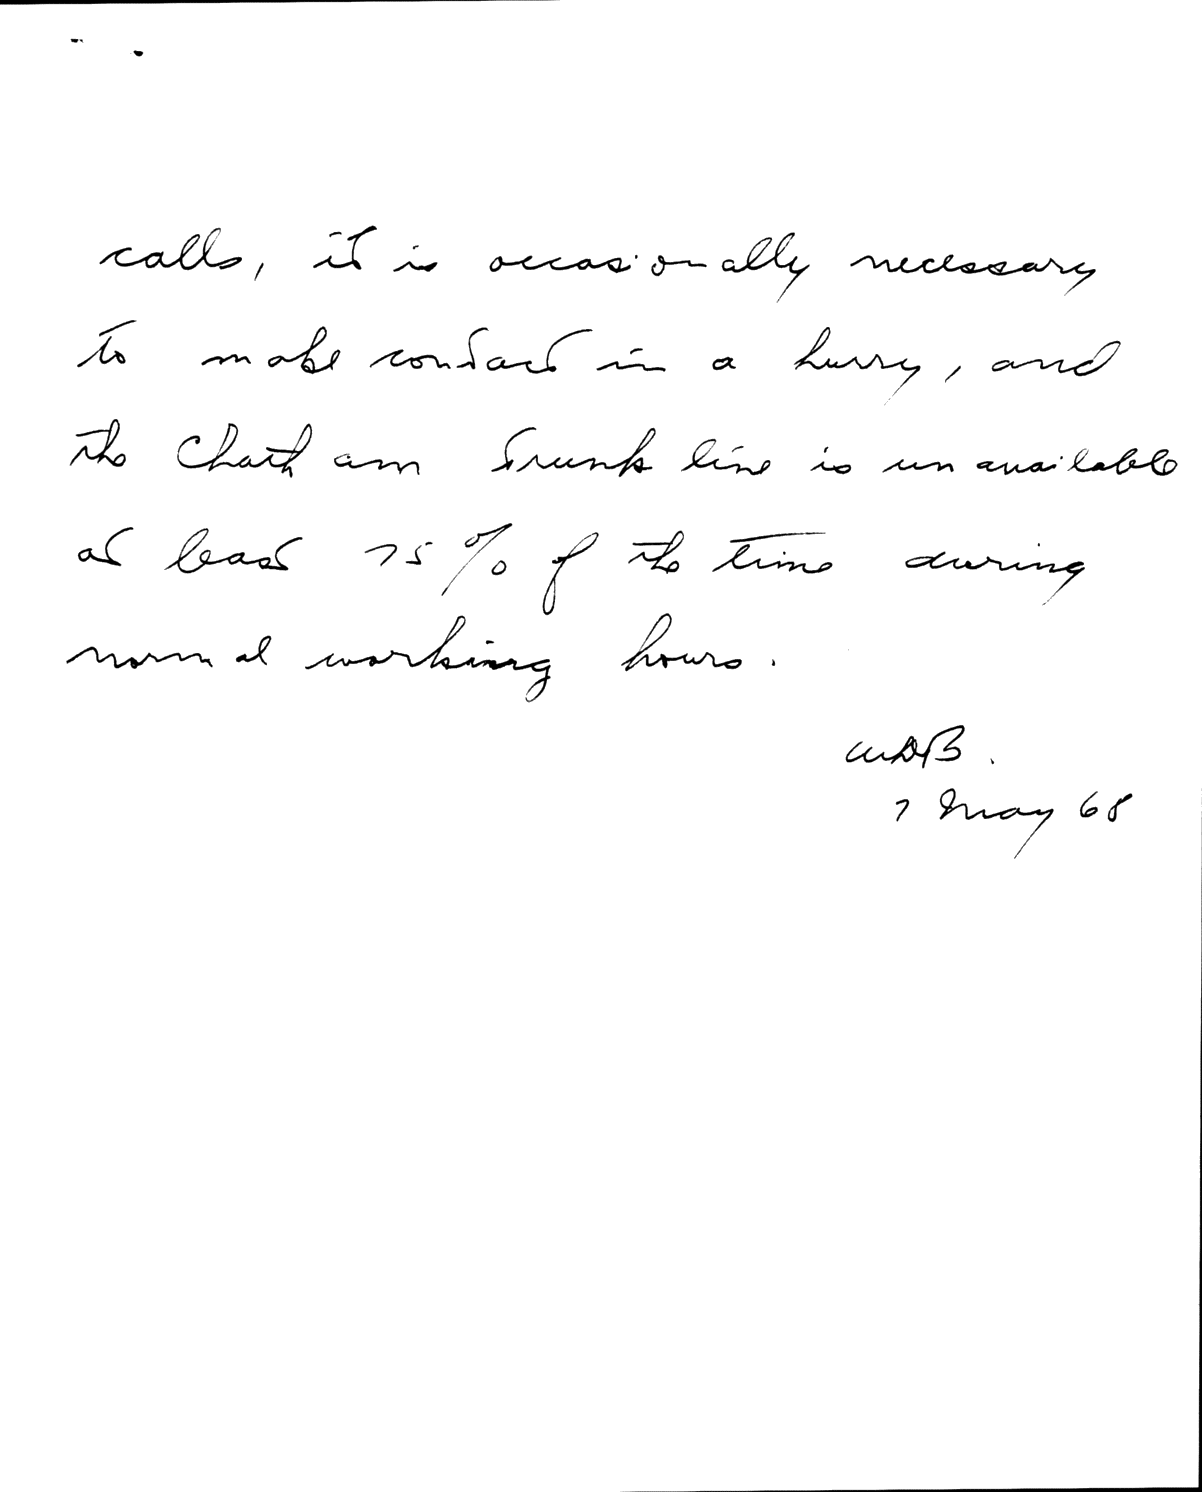 calls, it is occasionally necessary
to make contact in a hurry, and
the Chatham trunk line is unavailable
at least 75% of the time during
normal working hours.
WDB.
7 May 68